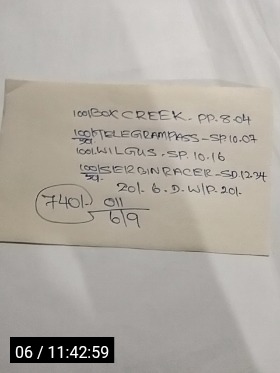 100/BOX CREEK - PP. 8.04
100/TELEGRAMPASS - SP. 10.07
100/. WILGUS - SP. 10.16
100/SERGINRACER - SD. 12.34
20/. 6. D. W/P. 20/.
740/-) 011
6/9
06 / 11:42:59